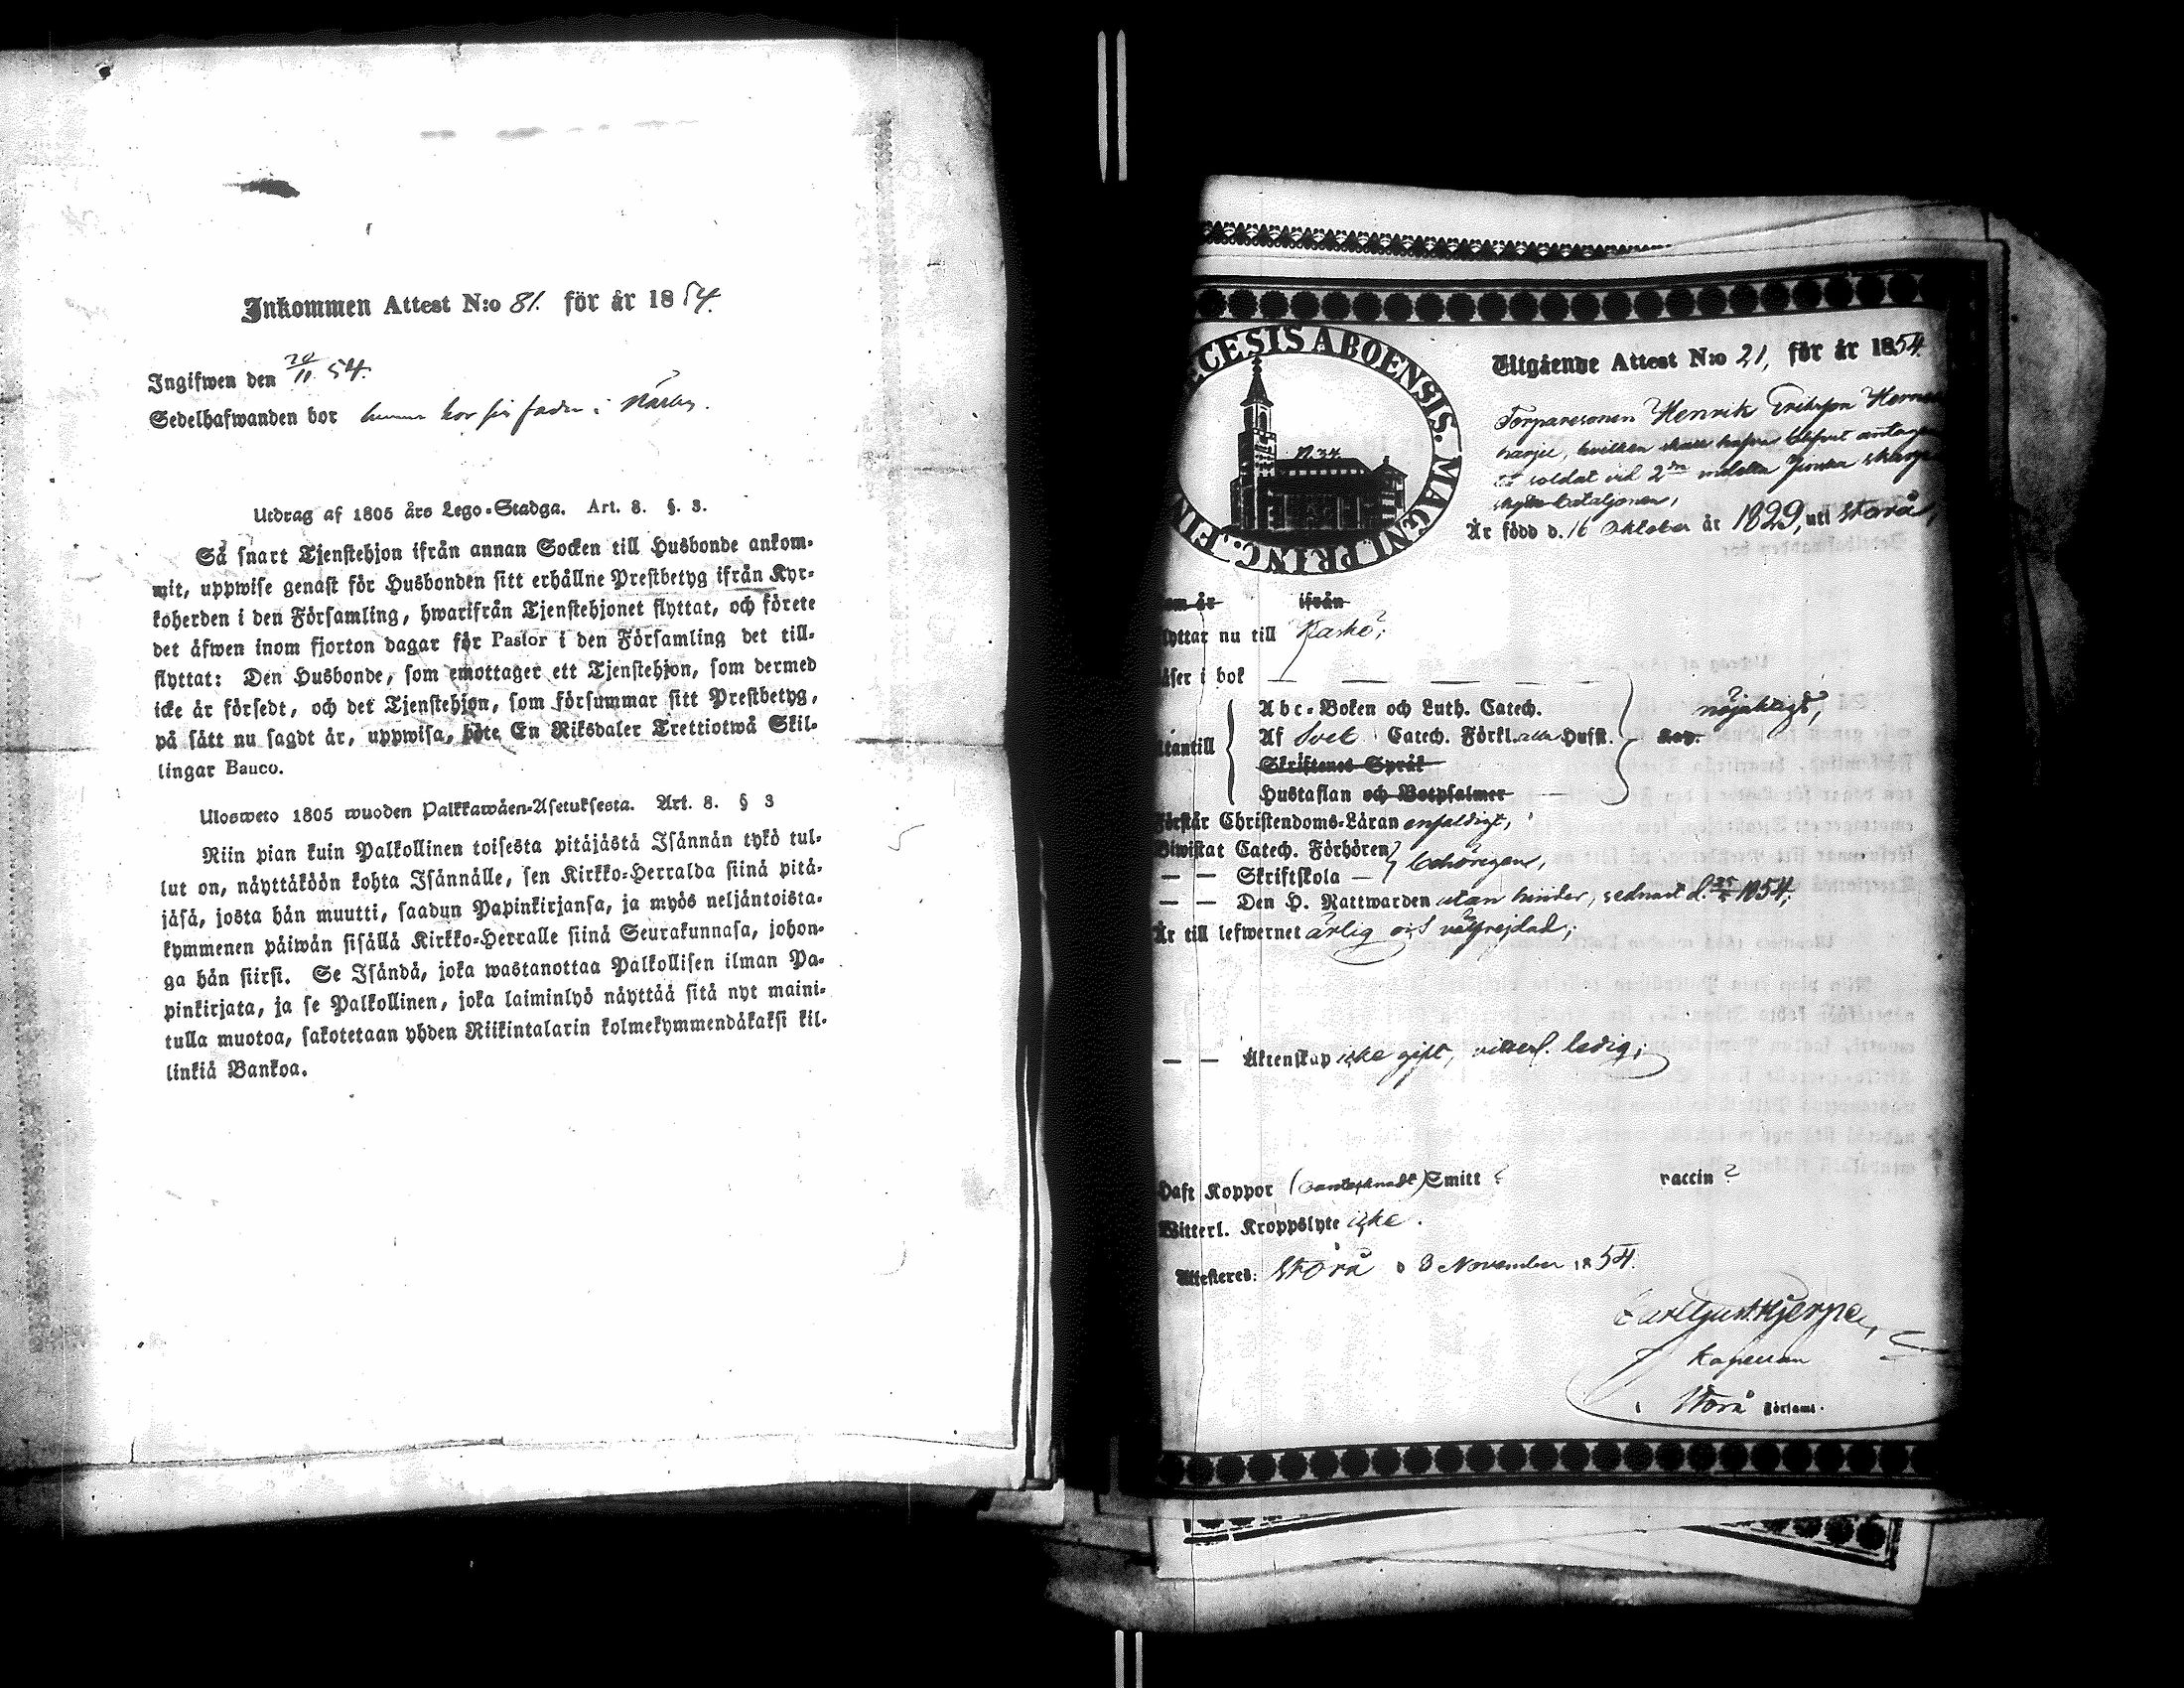 Inkommen Attest N:o 81. för år 1854.
Ingifwen den 20/11 54.
Sedelhafwanden bor hemma hos sin fader i
Utdrag af 1805 års Lego-Stadga. Art. 8. §. 3.
Så snart Tjenstehjon ifrån annan Socken till Husbonde ankom-
mit, uppwise genast för Husbonden sitt erhållne Prestbetyg ifrån Kyr-
koherden i den Församling, hwarifrån Tjenstehjonet flyttat, och förete
det äfwen inom fjorton dagar för Pastor i den Församling det till-
flyttat: Den Husbonde, som emottager ett Tjenstehjon, som dermed
icke är försedt, och det Tjenstehjon, som försummar sitt Prestbetyg,
på sätt nu sagdt är, uppwisa, böte En Riksdaler Trettiotwå Skil-
lingar Banco.
Ulosweto 1805 wuoden Palkkawäen-Asetuksesta. Art. 8. § 3
Niin pian kuin Palkollinen toisesta pitäjästä Isännän tykö tul-
lut on, näyttäköön kohta Isännälle, sen Kirkko-Herralda siinä pitä-
jäsä, josta hän muutti, saadun Papinkirjansa, ja myös neljäntoista-
kymmenen päiwän sisällä Kirkko-Herralle siinä Seurakunnasa, johon-
ga hän siirsi. Se Isändä, joka wastanottaa Palkollisen ilman Pa-
pinkirjata, ja se Palkollinen, joka laiminlyö näyttää sitä nyt maini-
tulla muotoa, sakotetaan yhden Riikintalarin kolmekymmendäkaksi kil-
linkiä Bankoa.
CESIS ABOENSIS. MAGNI PRINC. FIN
N. 34.
Utgående Attest N:o 21, för år 1854.
Torparesonen Henrik Eriksson
harju, hvilken skall hafva blifvit antagen
till soldat vid 2dra Finska skarp-
skytte bataljonen,
Är född d. 16 Oktober år 1829, uti Storå,
om år ifrån
lyttar nu till Kaskö;
äser i bok
Abc-Boken och Luth. Catech.
utantill Af Sveb. Catech. Förkl. alla Hufst. nöjaktigt,
Skriftenes Språk
Hustaflan och Botpsalmer
Förstår Christendoms-Läran enfaldigt,
Biwistat Catech. Förhören
— — Skriftskola — behörigen,
— — Den H. Nattwarden utan hinder, sednast d. 1854;
Är till lefwernet ärlig och välfrejdad;
— — Äktenskap icke gift, vitterl. ledig;
Haft Koppor Smitt ? vaccin ?
Witterl. Kroppslyte icke.
Attesteras: Storå d 3 November 1854.
Carl Gust. Hjerpe,
Kapellan
i Storå Församl.